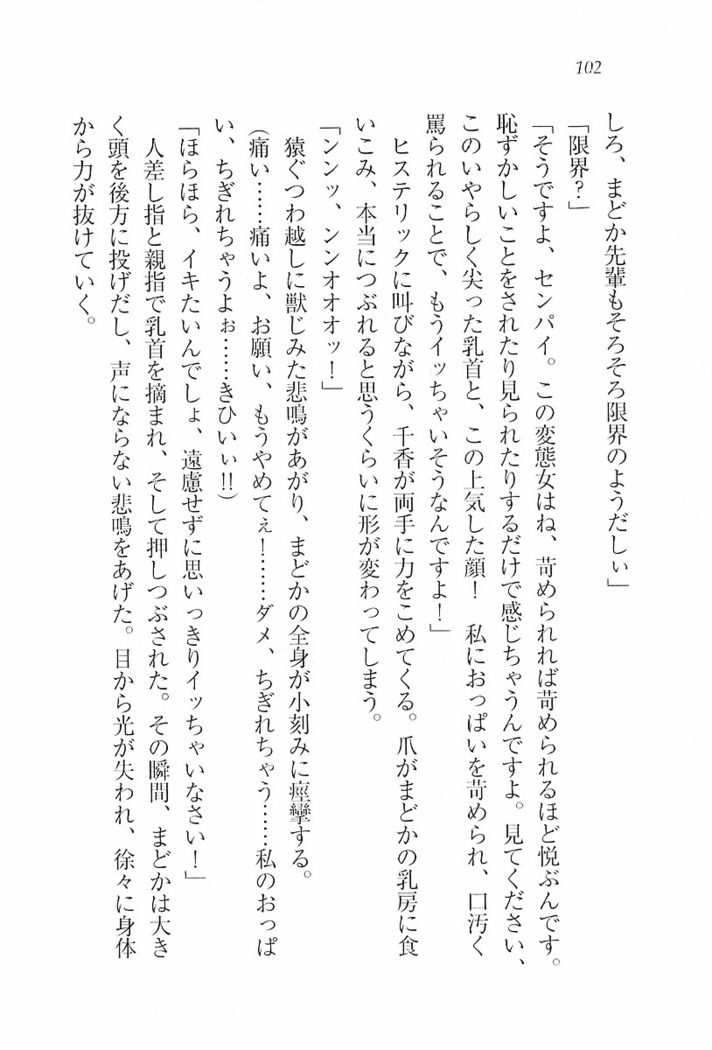 102
しろ、まどか先輩もそろそろ限界のようだしぃ」
「限界？」
「そうですよ、センパイ。この変態女はね、苛められれば苛められるほど悦ぶんです。
恥ずかしいことをされたり見られたりするだけで感じちゃうんですよ。見てください、
このいやらしく尖った乳首と、この上気した顔！　私におっぱいを苛められ、口汚く
罵られることで、もうイッちゃいそうなんですよ！」
ヒステリックに叫びながら、千香が両手に力をこめてくる。爪がまどかの乳房に食
いこみ、本当につぶれると思うくらいに形が変わってしまう。
「ンンッ、ンンオオオッ！」
猿ぐつわ越しに獣じみた悲鳴があがり、まどかの全身が小刻みに痙攣する。
（痛い……痛いよ、お願い、もうやめてぇ！……ダメ、ちぎれちゃう……私のおっぱ
い、ちぎれちゃうよぉ……きひいぃ!!）
「ほらほら、イキたいんでしょ、遠慮せずに思いっきりイッちゃいなさい！」
人差し指と親指で乳首を摘まれ、そして押しつぶされた。その瞬間、まどかは大き
く頭を後方に投げだし、声にならない悲鳴をあげた。目から光が失われ、徐々に身体
から力が抜けていく。